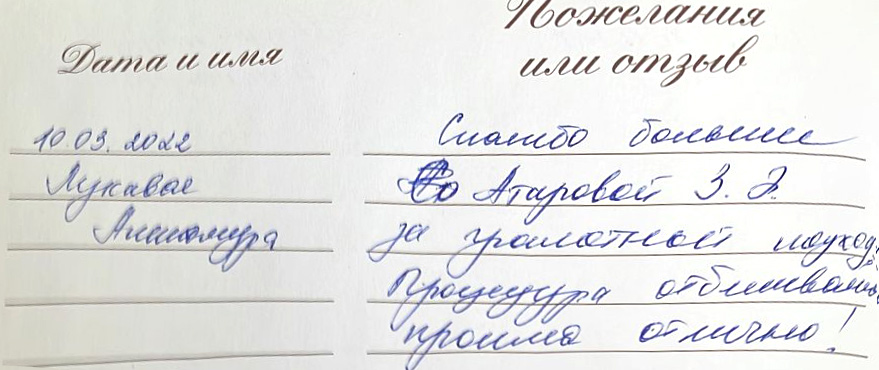 Пожелания
Дата и имя
или отзыв
10.03.2022
Спасибо большое
Лукавая
Атаровой З. Э.
за грамотной подход,
Процедура отбеливания
прошла отлично!